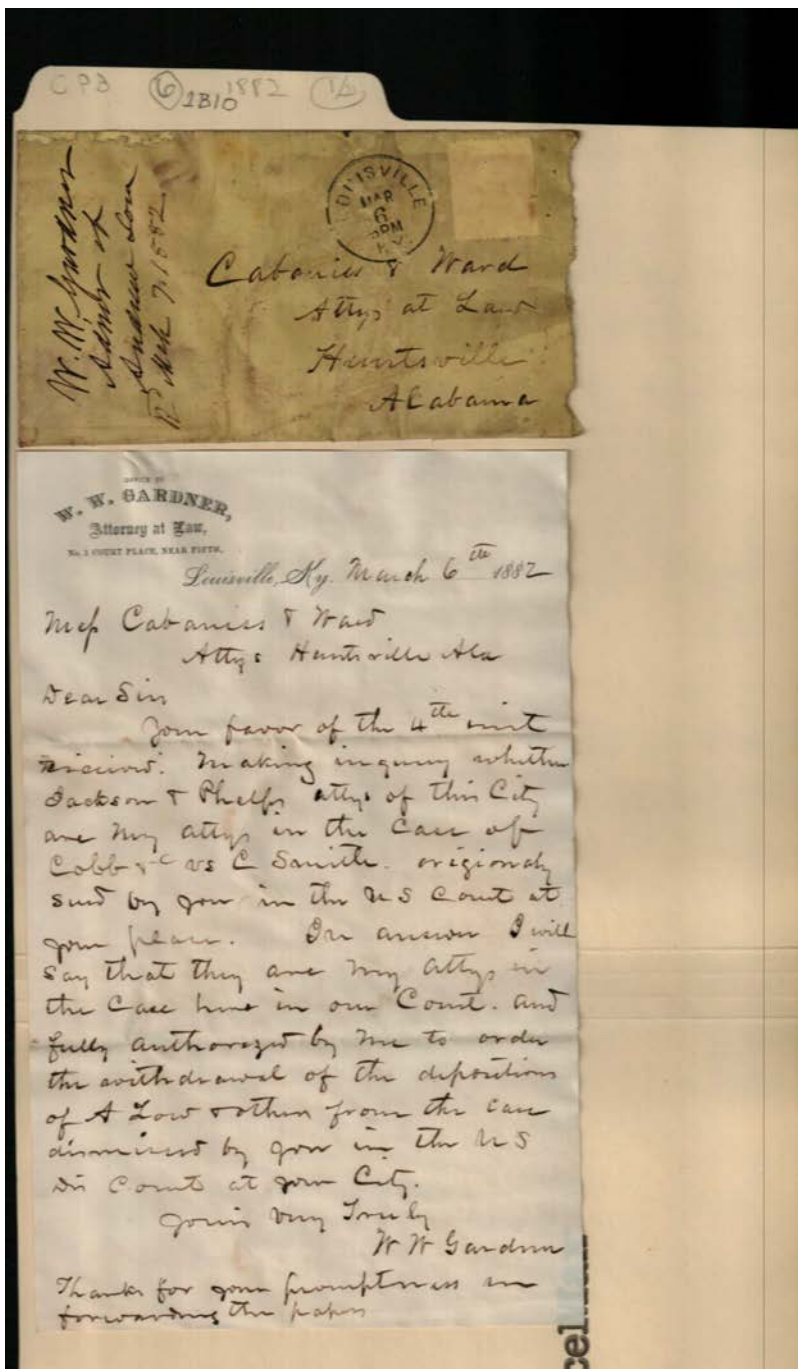 CPB 6 1B10 1882 1/2
W. W. Gardner
Admr of
Andrew Low
Rd Mch 7, 1882
LOUISVILLE
MAR
6
PM
KY.
Cabaniss & Ward
Attys at Law
Huntsville
Alabama
OFFICE OF
W. W. GARDNER,
Attorney at Law,
COURT PLACE, NEAR FIFTH,
Louisville, Ky. March 6th 1882
Mess Cabaniss & Ward
Attys Huntsville Ala
Dear Sirs
Your favor of the 4th inst
received. Making inquiry whether
Jackson & Phelps attys of this City
are my attys in the Case of
Cobb &c vs C Smith. origionaly
sued by you in the US Court at
your place. In answer I will
say that they are my attys in
the Case here in our Court. and
fully authorized by me to order
the withdrawal of the depositions
of A Low & others from the case
dismissed by you in the US
Dis Court at your City.
Yours very Truly
W W Gardner
Thanks for your promptness in
forwarding the papers
cel